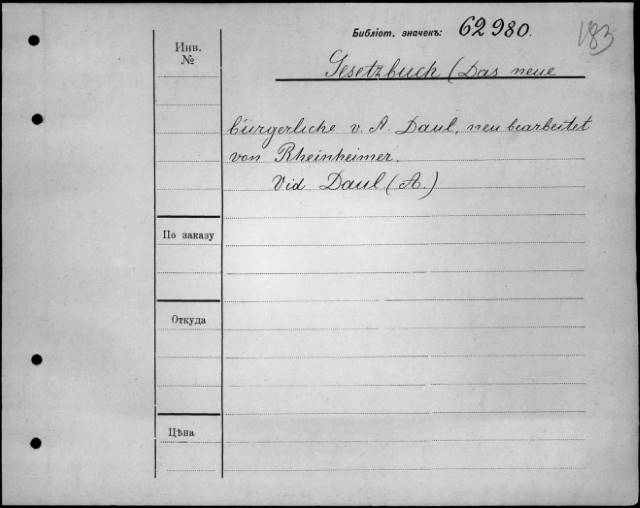 Библіот. значекъ: 62980. 183
Инв.
№
Gesetzbuch (Das neue
bürgerliche v. A. Daul, neu bearbeitet
von Rheinheimer.
Vid Daul (A.)
По заказу
Откуда
Цѣна